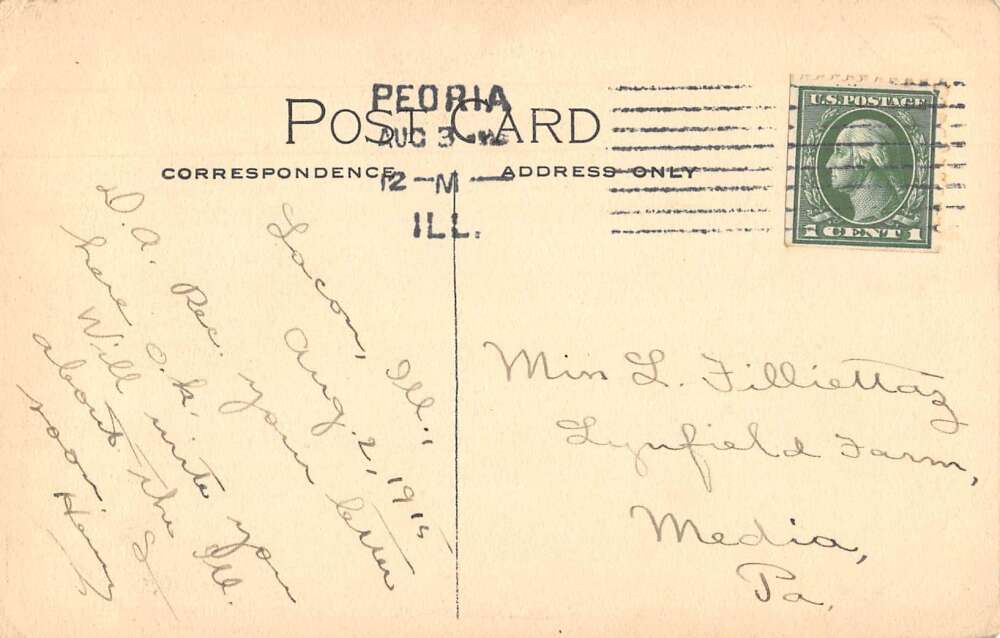 POST CARD
CORRESPONDENCE
ADDRESS ONLY
PEORIA
AUG 3
12-M
ILL.
U.S. POSTAGE
1 CENT 1
Lacon, Ill.,
Aug. 2, 1915
D. A. Rec. your letter
here o.k.
Will write you
about the Ill.
soon.
Miss L. Filliettaz
Lynfield Farm,
Media,
Pa.